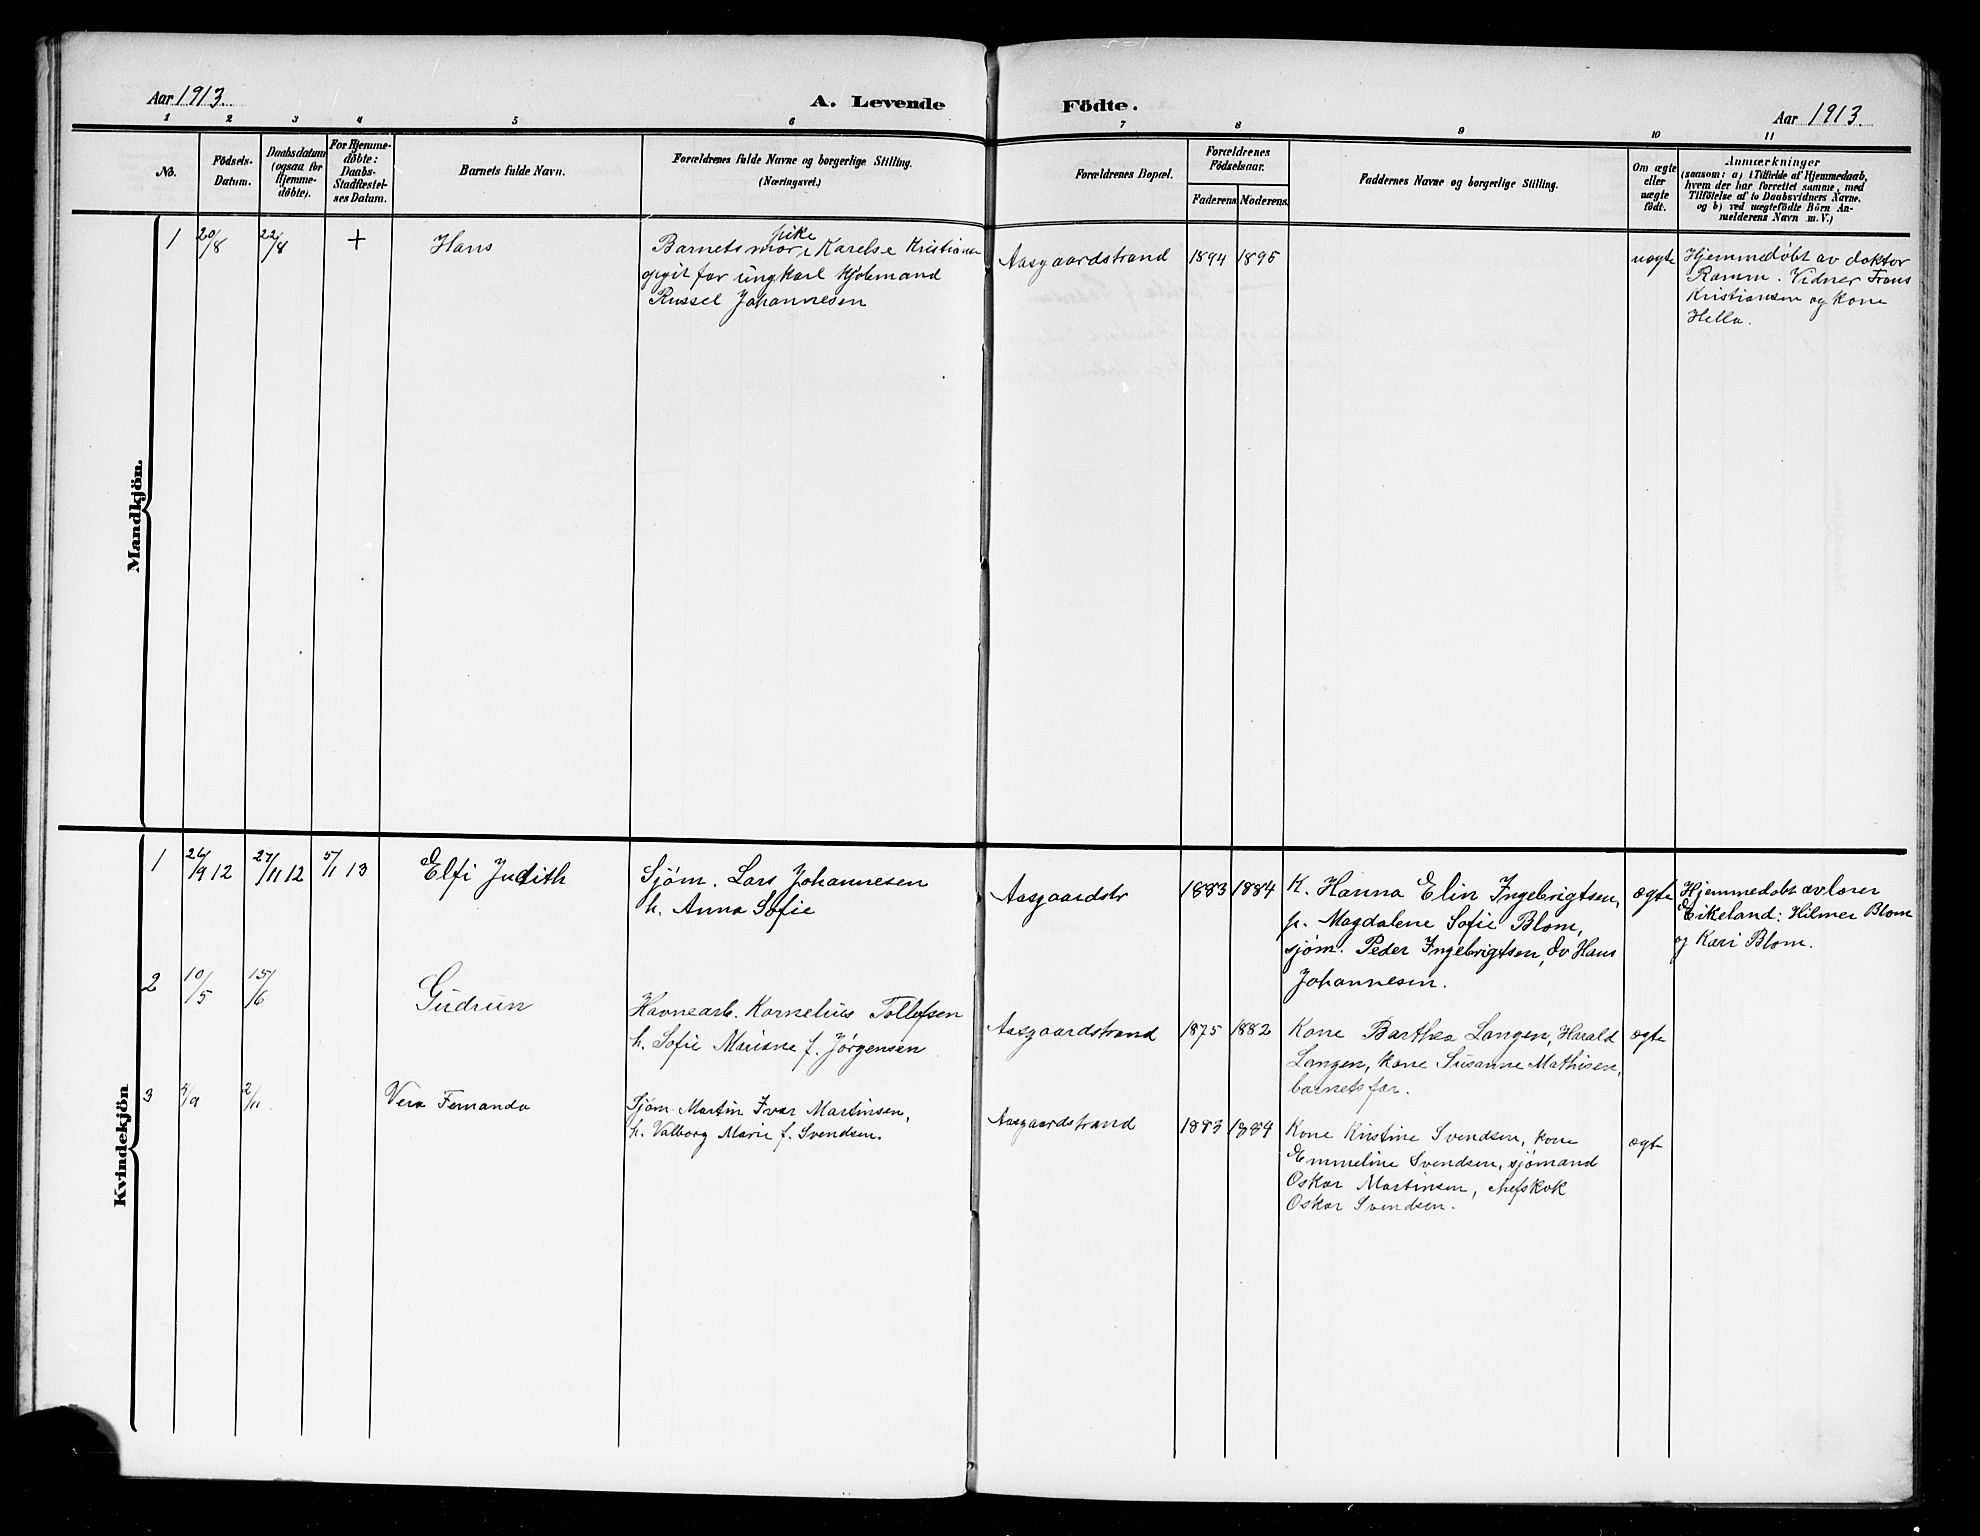 Aar 1913.
A. Levende Födte.
Aar 1913.
1 2 3 4 5 6 7 8 9 10 11
No.
Födsels-
Datum.
Daabsdatum
(ogsaa for
Hjemme-
döbte).
For Hjemme-
døbte:
Daabs-
Stadfæstel-
ses Datum.
Barnets fulde Navn.
Forældrenes fulde Navne og borgerlige Stilling.
(Næringsvei.)
Forældrenes Bopæl.
Forældrenes
Födselsaar.
Faderens. Moderens.
Faddernes Navne og borgerlige Stilling.
Om ægte
eller
uægte
födt.
Anmærkninger
(saasom: a) i Tilfælde af Hjemmedaab,
hvem der har forrettet samme, med
Tilföielse af to Daabsvidners Navne.
og b) ved uægtefödte Börn An-
melderens Navn m. V.)
Mandkjön.
1 20/8 22/8 + Hans
pike
Barnets mor: Karelse Kristians
opgit far ungkarl Kjøbmand
Russel Johannesen
Aasgaardstrand 1894 1895
uægte
Hjemmedøbt av doktor
Ramm. Vidner Frans
Kristiansen og kone
Hella.
Kvindekjön
1 26/9 12 27/11 12 5/1 13 Elfi Judith
Sjøm. Lars Johannesen
h. Anna Sofie
Aasgaardstr 1883 1884
K. Hanna Elin Ingebrigtsen,
p. Magdalene Sofie Blom,
sjøm. Peder Ingebrigtsen, do Hans
Johannesen.
ægte
Hjemmedøbt av lærer
Eikeland: Hilmer Blom
og Kari Blom.
2 10/5 15/6 Gudrun
Havnearb. Kornelius Tollefsen
h. Sofie Mariane f. Jørgensen
Aasgaardstrand 1875 1882
Kone Barthea Langen, Harald
Langen, kone Susanne Mathisen,
barnets far.
ægte
3 4/9 2/11 Vera Fernanda
Sjøm. Martin Ivar Martinsen,
h. Valborg Marie f. Svendsen.
Aasgaardstrand 1883 1884
Kone Kristine Svendsen, kone
Emmeline Svendsen, sjømand
Oskar Martinsen, chefskok
Oskar Svendsen.
ægte